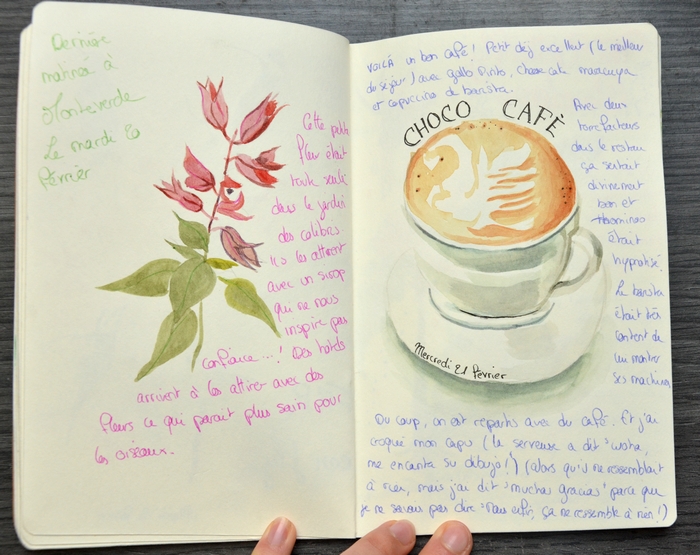 Dernière
matinée à
Monteverde
Le mardi 20
Février
Cette petite
fleur était
toute seule
dans le jardin
des calibris
Ils les attirent
avec un sirop
qui ne nous
inspire pas
confiance...! Des hôtels
arrivent à les attirer avec des
fleurs ce qui parait plus sain pour
les oiseaux.
VOILÀ un bon café! Petit déj excellent (le meilleur
du séjour) avec gallo pinto, cheese cake maracuya
et capuccino de barista.
CHOCO CAFÈ
Avec deux
torréfacteurs
dans le restau
ça sentait
divinement
bon et
était
hypnotisé.
Le barista
était très
content de
lui montrer
ses machines
Mercredi 21 Février
Du coup, on est repartis avec du café. Et j'ai
croqué mon capu (la serveuse a dit "
me encanta su dibujo!") (alors qu'il ne ressemblait
à rien, mais j'ai dit "muchas gracias" parce que
je ne savais pas dire "Mais enfin, ça ne ressemble à rien!")